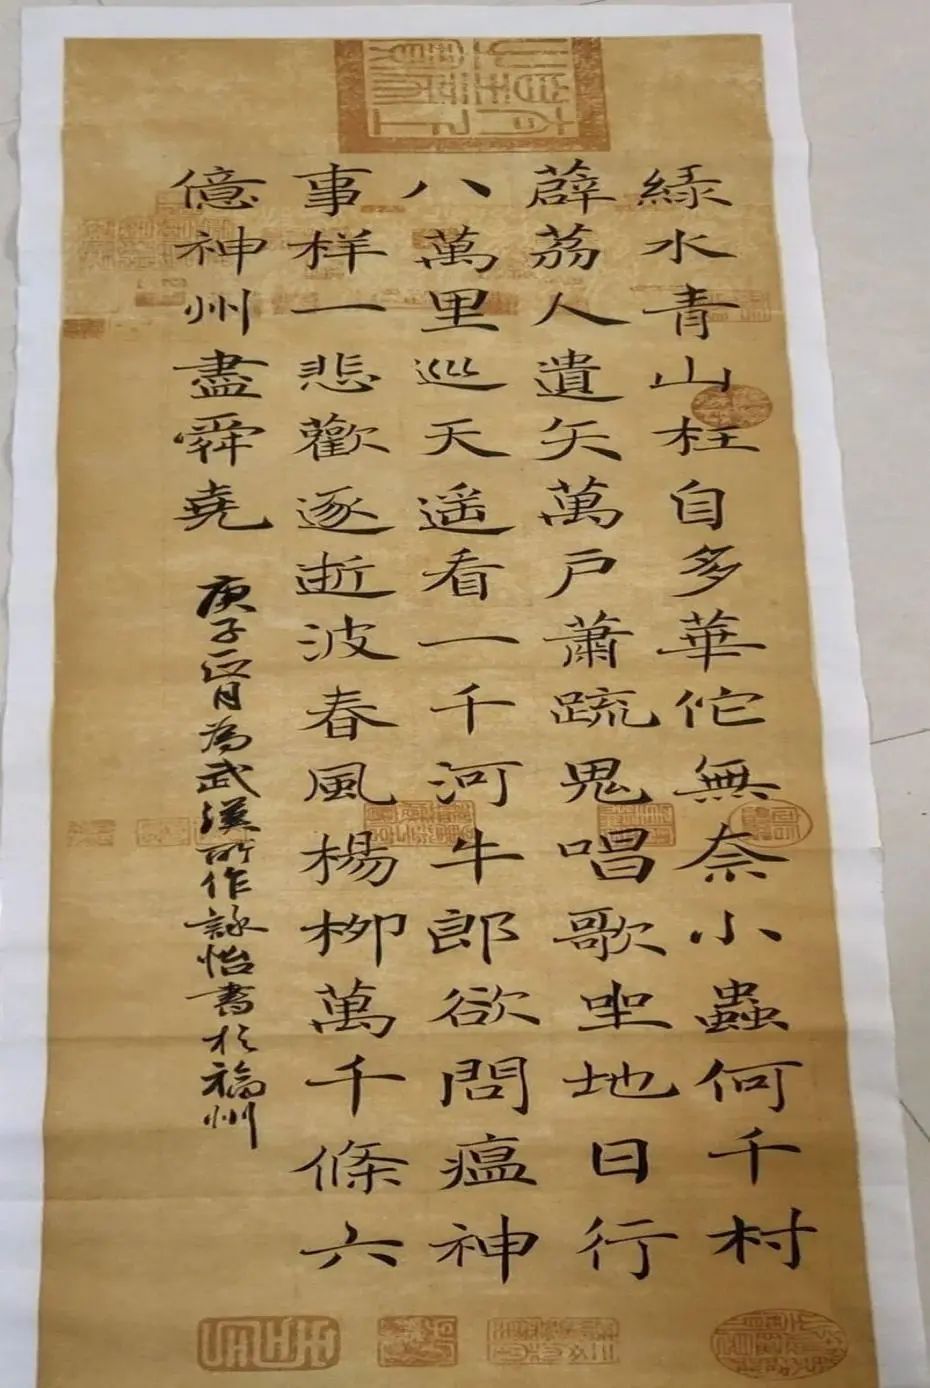 緑水青山枉自多華佗無奈小蟲何千村
薜荔人遺矢萬户蕭疏鬼唱歌坐地日行
八萬里巡天遥看一千河牛郎欲問瘟神
事样一悲歡逐逝波春風楊柳萬千條六
億神州盡舜堯
庚子正月為武漢所作詠怡書於福州